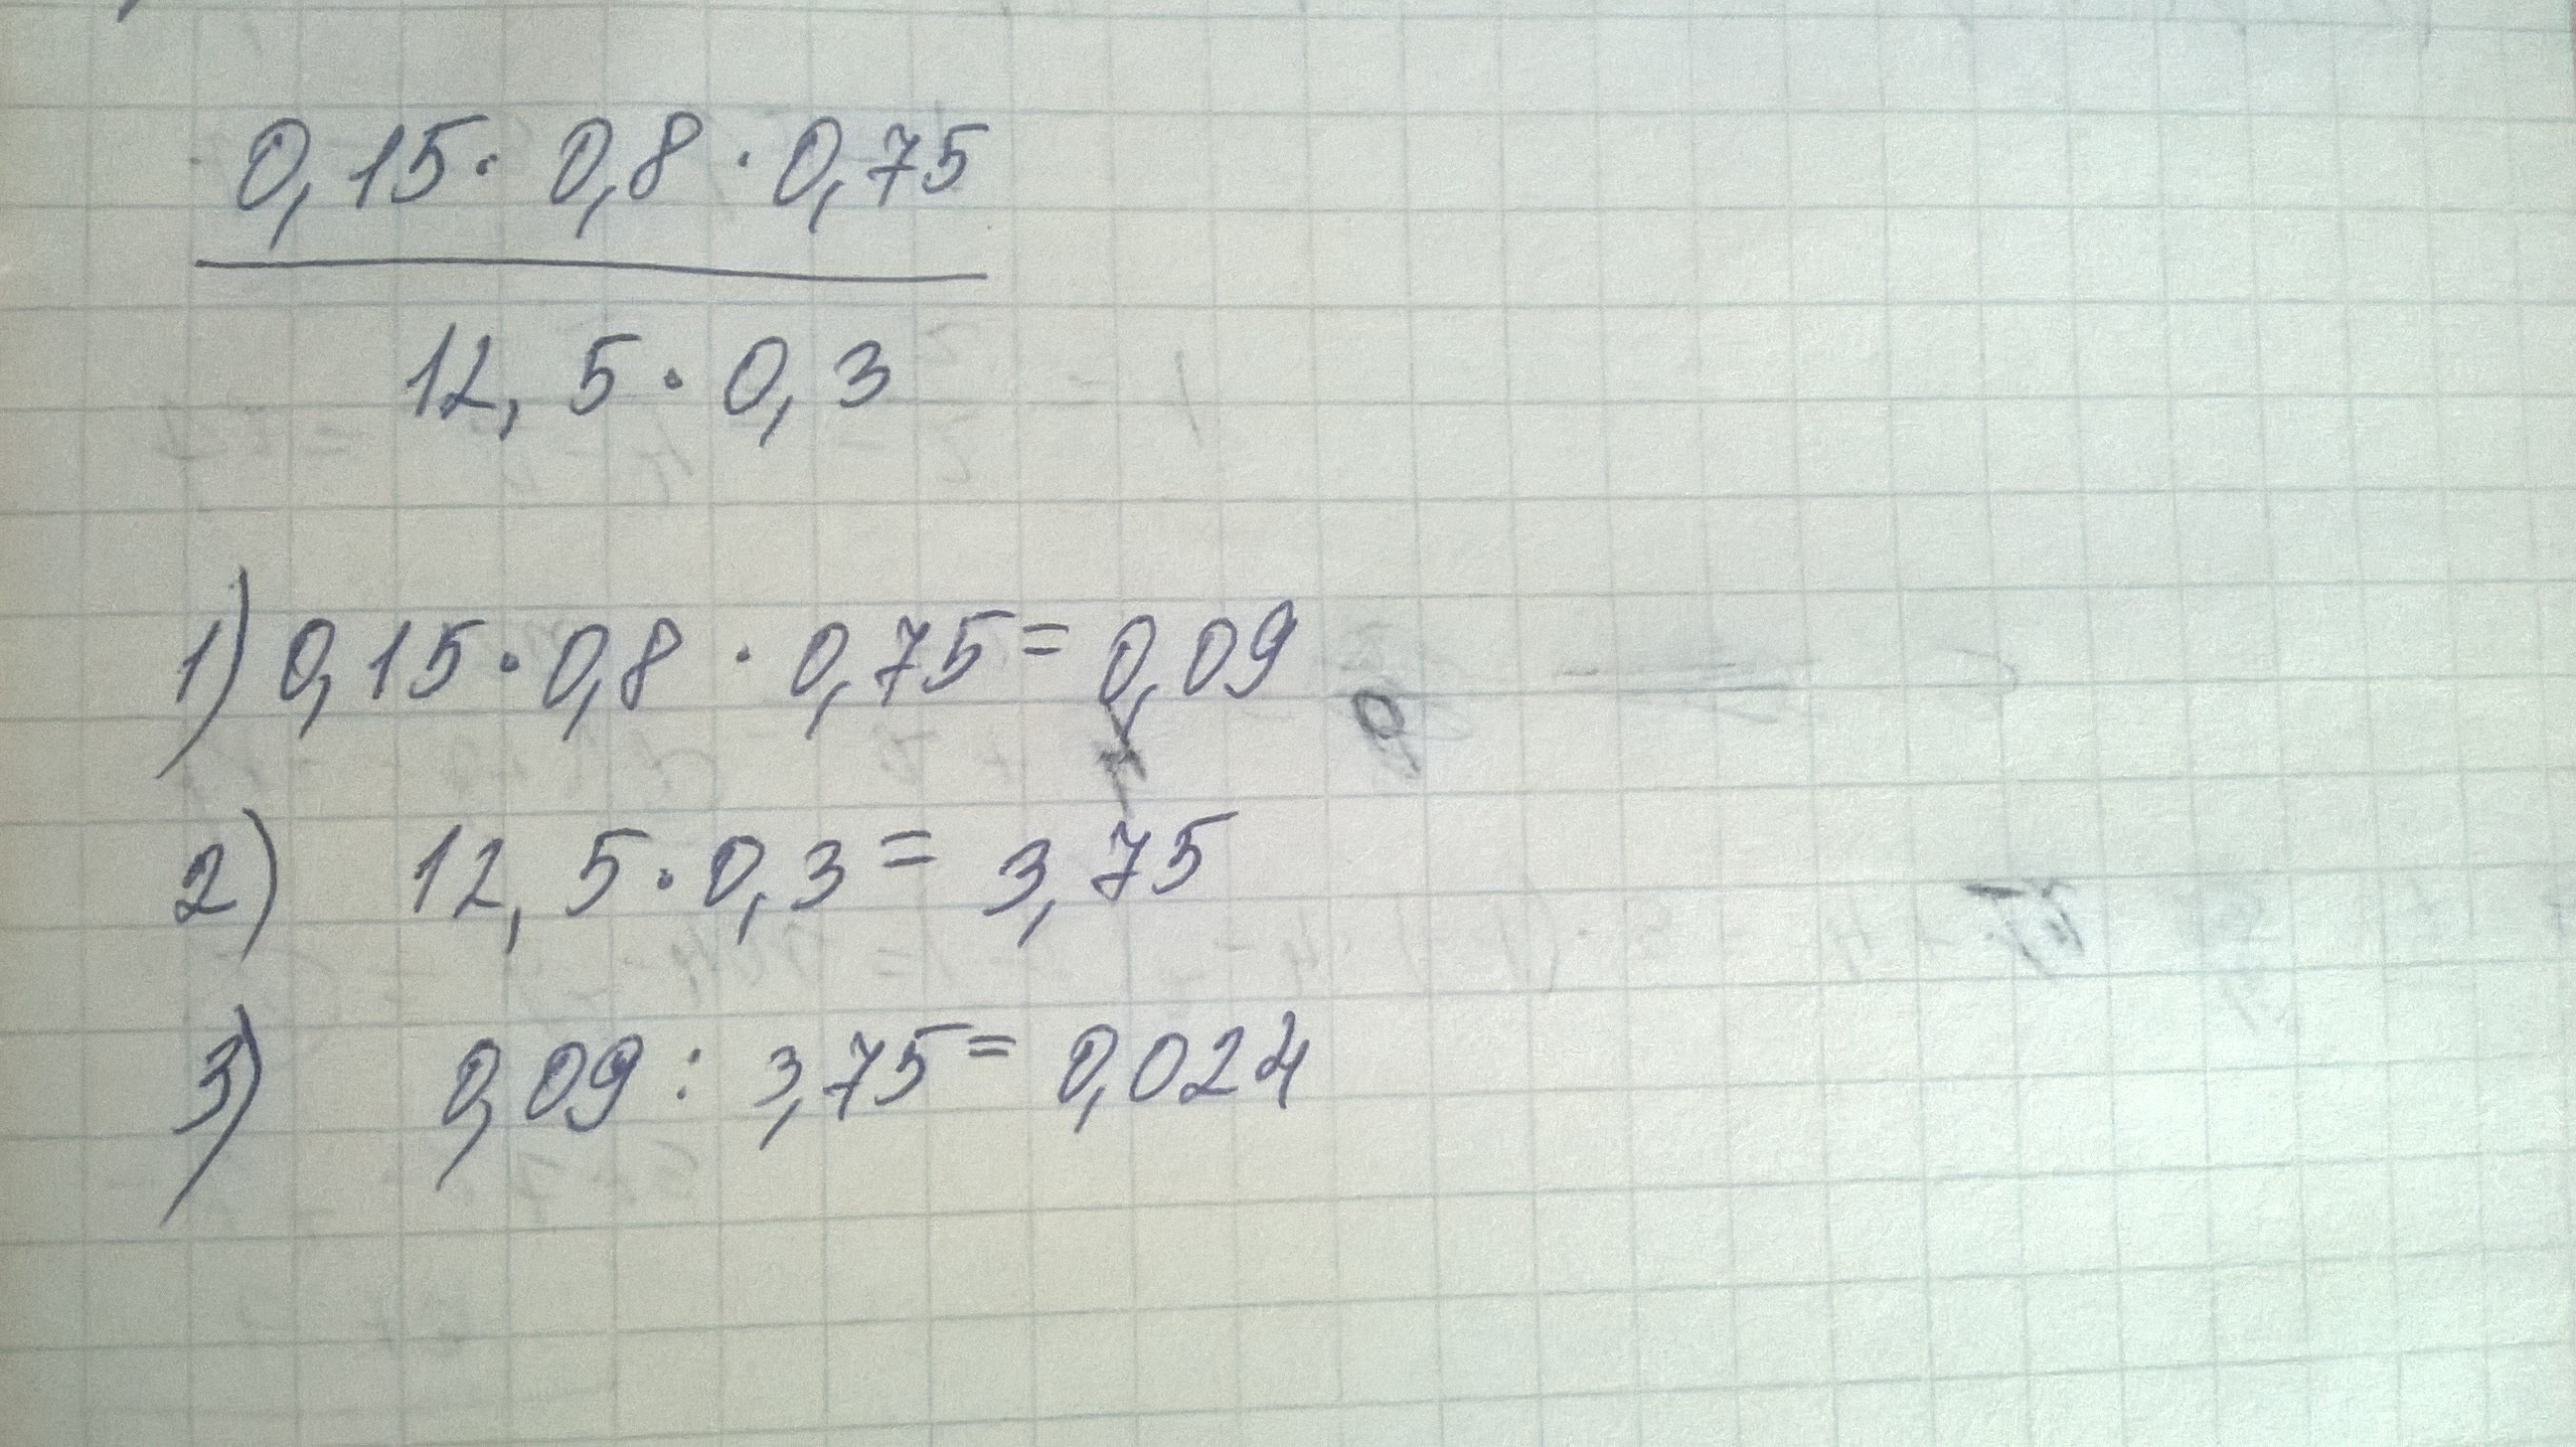 0,15 · 0,8 · 0,75
12,5 · 0,3
1) 0,15 · 0,8 · 0,75 = 0,09
2) 12,5 · 0,3 = 3,75
3) 0,09 : 3,75 = 0,024